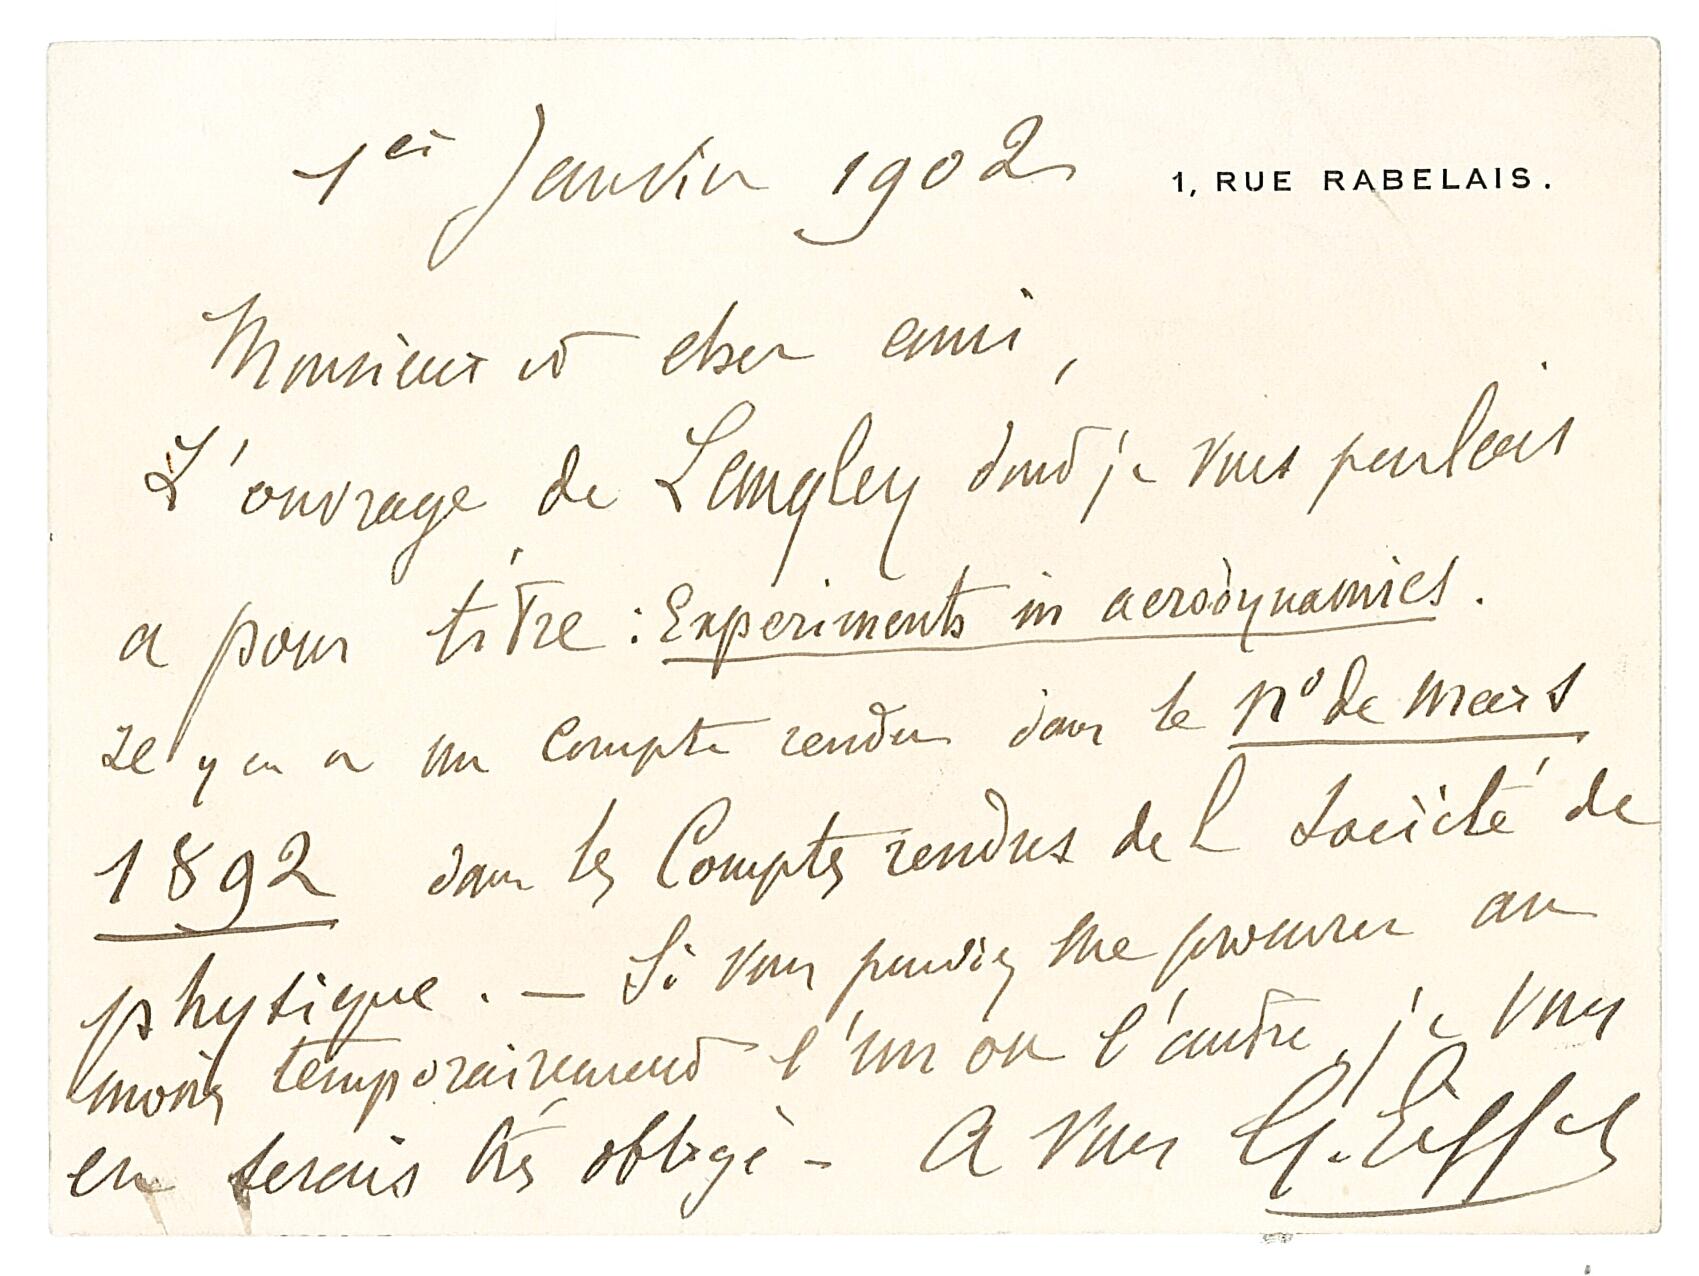 1er Janvier 1902
1, RUE RABELAIS.
Monsieur et cher ami,
L'ouvrage de Langley dont je vous parlais
a pour titre : Experiments in aerodynamics.
Il y en a un compte rendu dans le no de mars
1892 dans les Comptes rendus de l Société de
physique. — Si vous pouviez me procurer au
moins temporairement l'un ou l'autre, je vous
en serais très obligé - A vous G. Eiffel